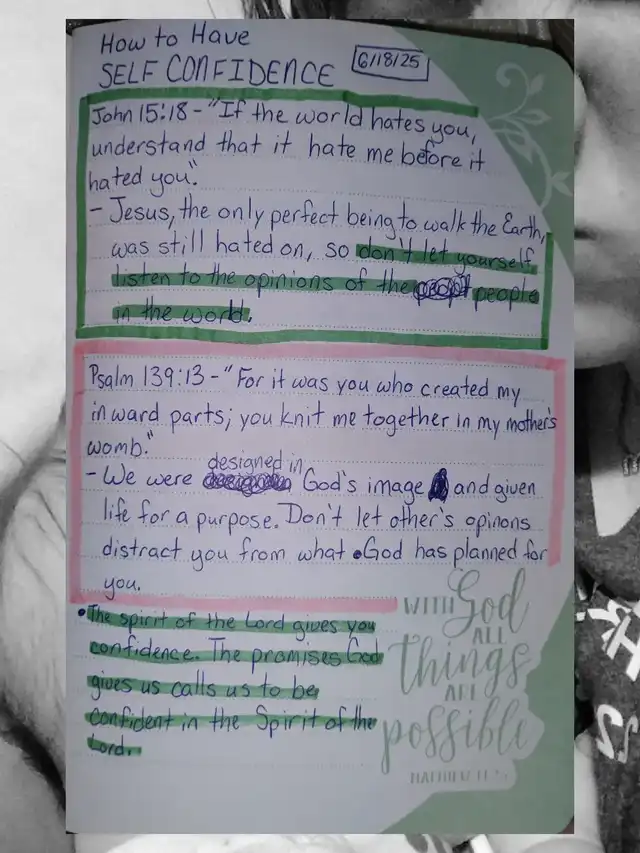 How to Have
SELF CONFIDENCE
6/18/25
John 15:18 - "If the world hates you,
understand that it hate me before it
hated you".
- Jesus, the only perfect being to walk the Earth,
was still hated on, so don't let yourself
listen to the opinions of the people
in the world.
Psalm 139:13 - "For it was you who created my
inward parts; you knit me together in my mother's
womb."
designed in
- We were God's image and given
life for a purpose. Don't let other's opinons
distract you from what God has planned for
you.
• The spirit of the Lord gives you
confidence. The promises God
gives us calls us to be
confident in the Spirit of the
Lord.
WITH God
ALL
things
ARE
possible
MATTHEW